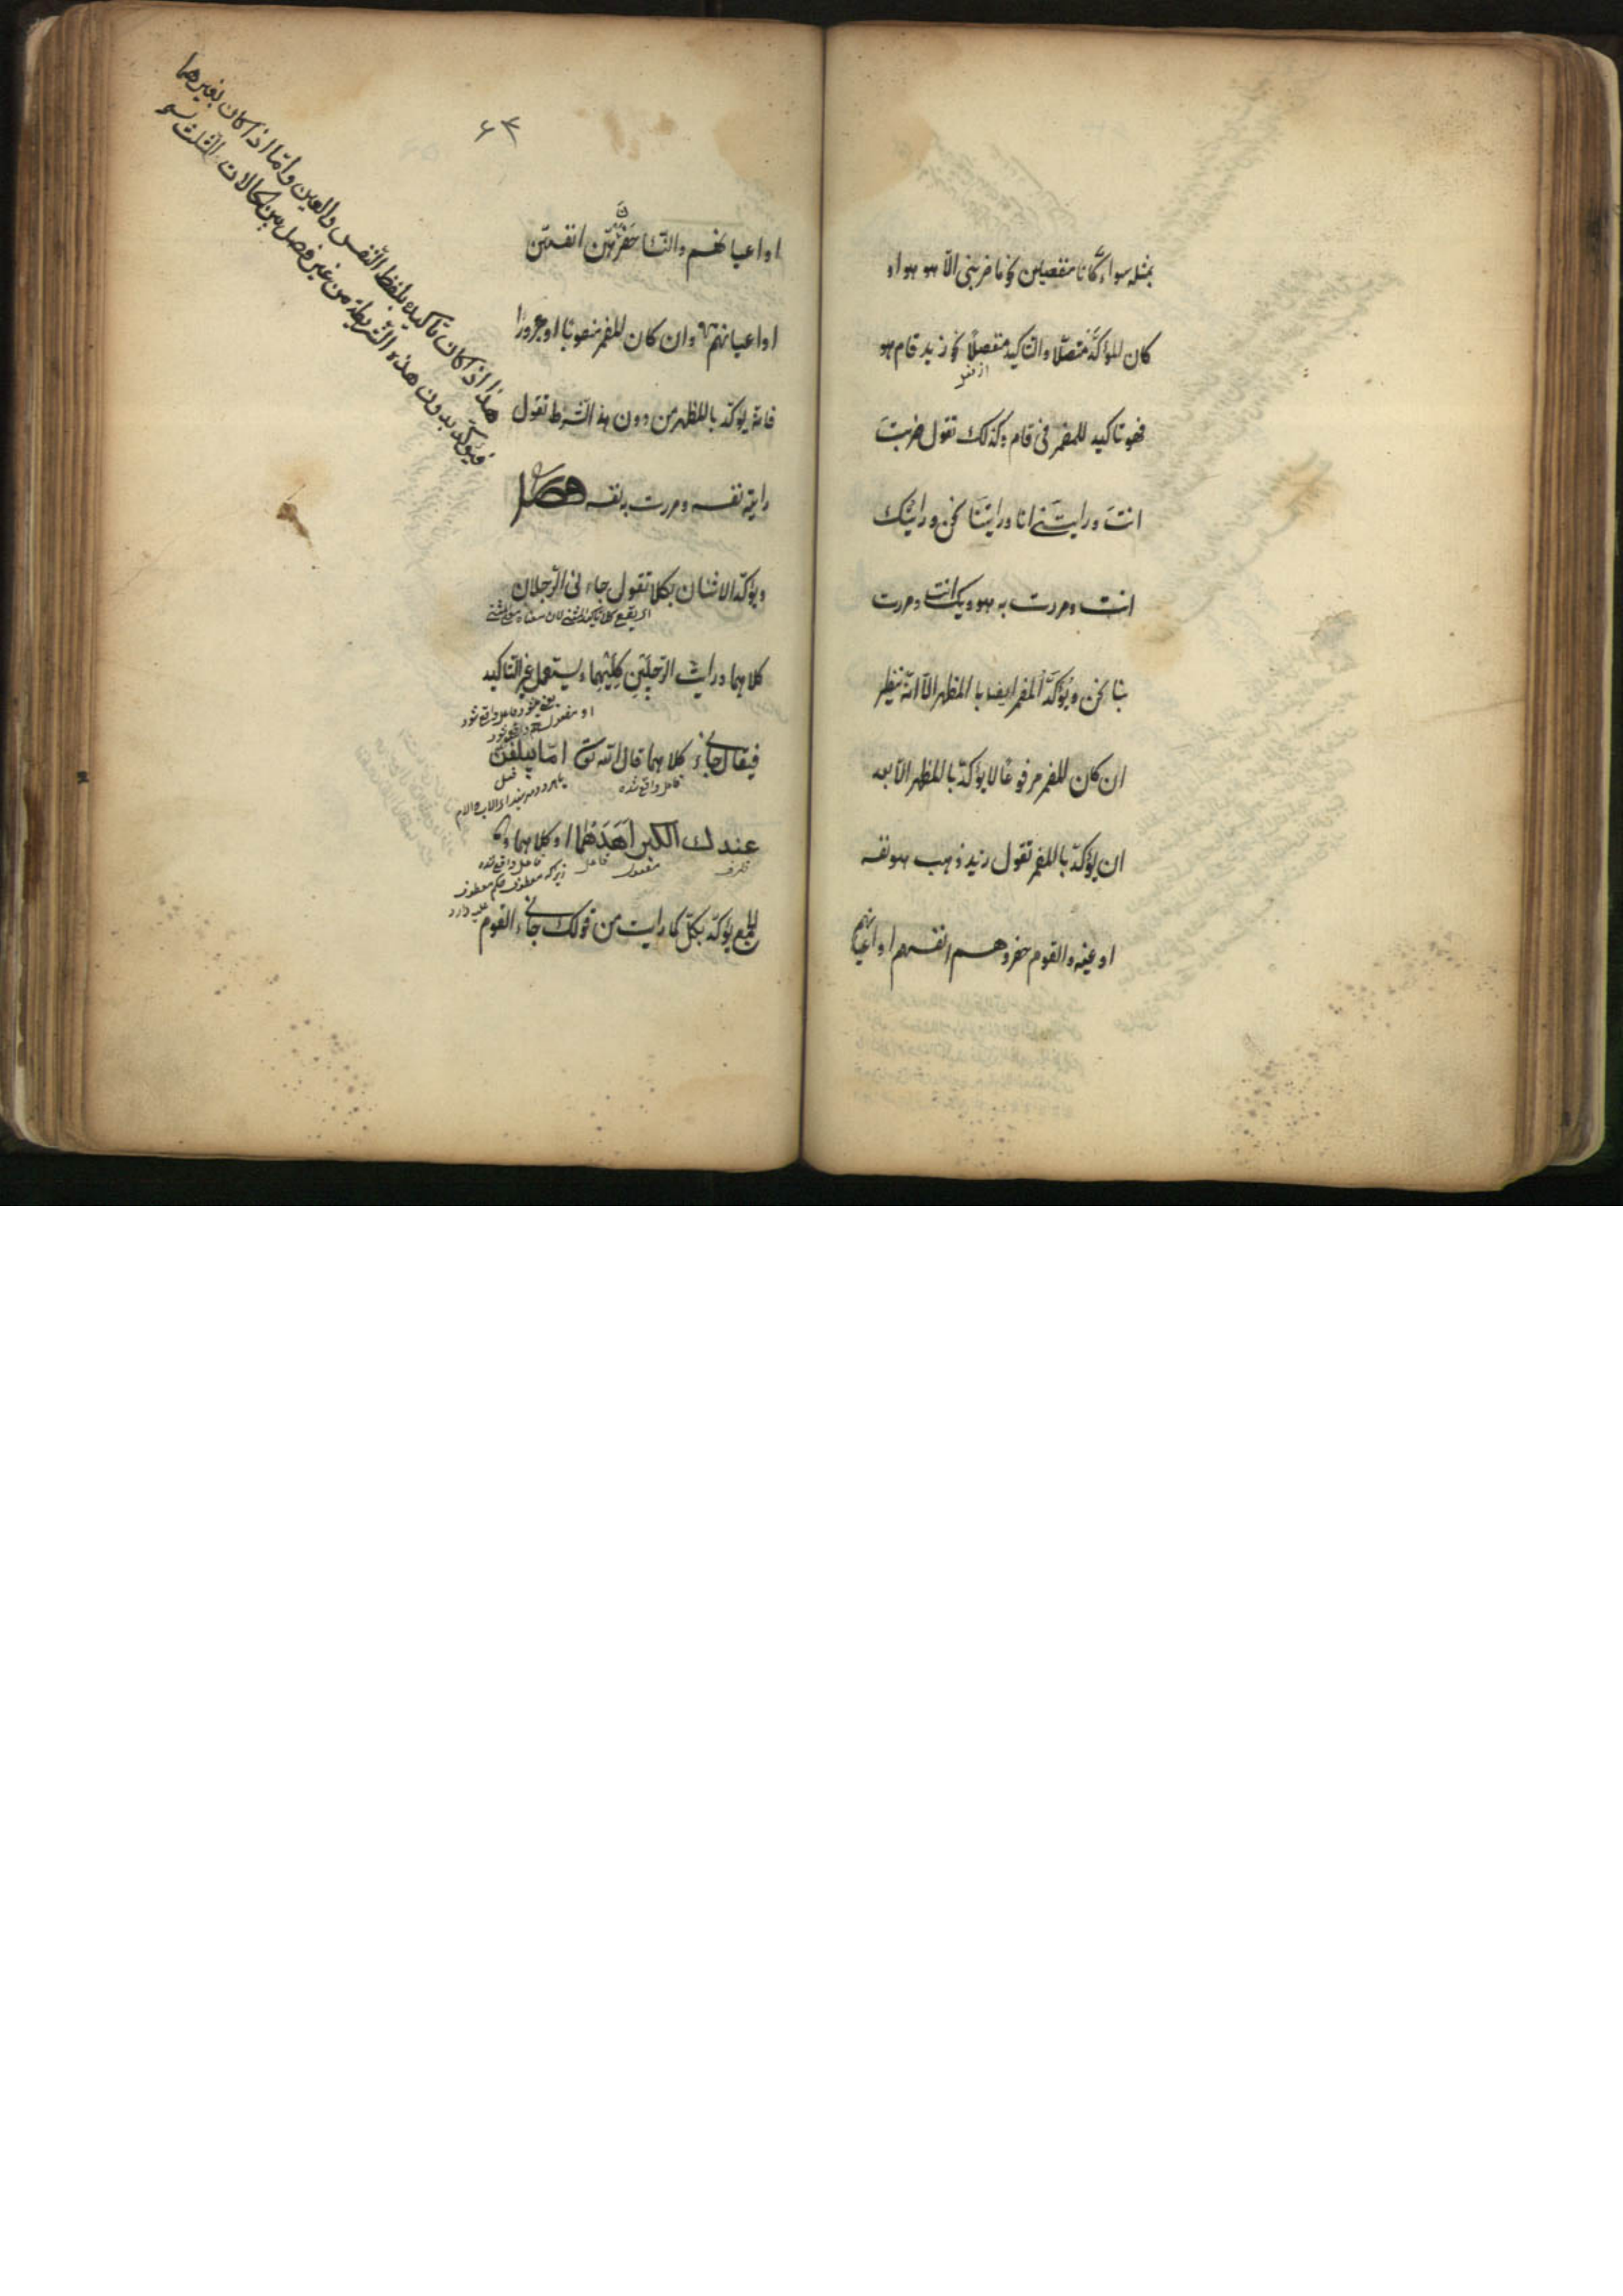 بمثله سواء كانا منفصلين نحو ما ضربنى الّا هو هو او
كان المؤكَّد متصلًا والتاكيد منفصلًا نحو زيد قام هو
فهو تاكيد للمضمر فى قام وكذلك تقول ضربتَ
انتَ ورايتَنے انا ورايتَنَا نحن ورايتك
انت ومررت به هو وبك انت ومررت
بنا نحن ويؤكّد المضمر ايضا بالمظهر الّا انّه ينظر
ان كان المضمر مرفوعًا لا يؤكّد بالمظهر الّا بعد
ان يؤكّد بالمضمر تقول زيد ذهب هو نفسه
او عينه والقوم حضروا هم انفسهم او اعيانهم
۶۴
او اعيانهم والنّسا حَضَرْنَ هنّ انفسهنّ
او اعيانهنّ وان كان المضمر منصوبًا او مجرورًا
فانه يؤكّد بالمظهر من دون هذا الشّرط تقول
رايته نفسه ومررت به نفسه فصل
ويؤكّد الاثنان بكلا تقول جاءنى الرّجلان
كلاهما ورايت الرّجلَيْنِ كِلَيْهِما ويستعمل غير التّاكيد
فيقال جاءنے كلاهما قال اللّه تعالى امّا يبلغنّ
فاعل واقع شده
عندك الكبر اَحَدُهُمَا او كلاهما و
ظرف مفعول فاعل فاعل واقع شده
زيراكه معطوف حكم معطوف
عليه دارد
الجمع يؤكّد بكلّ كما رايت من قولك جاءنے القوم
هذا اذا كان تاكيده بلفظ النّفس والعين وامّا اذا كان بغيرهما
فيؤكّد بدون هذه الشّريطة من غير فصل بين الحالات الثلث